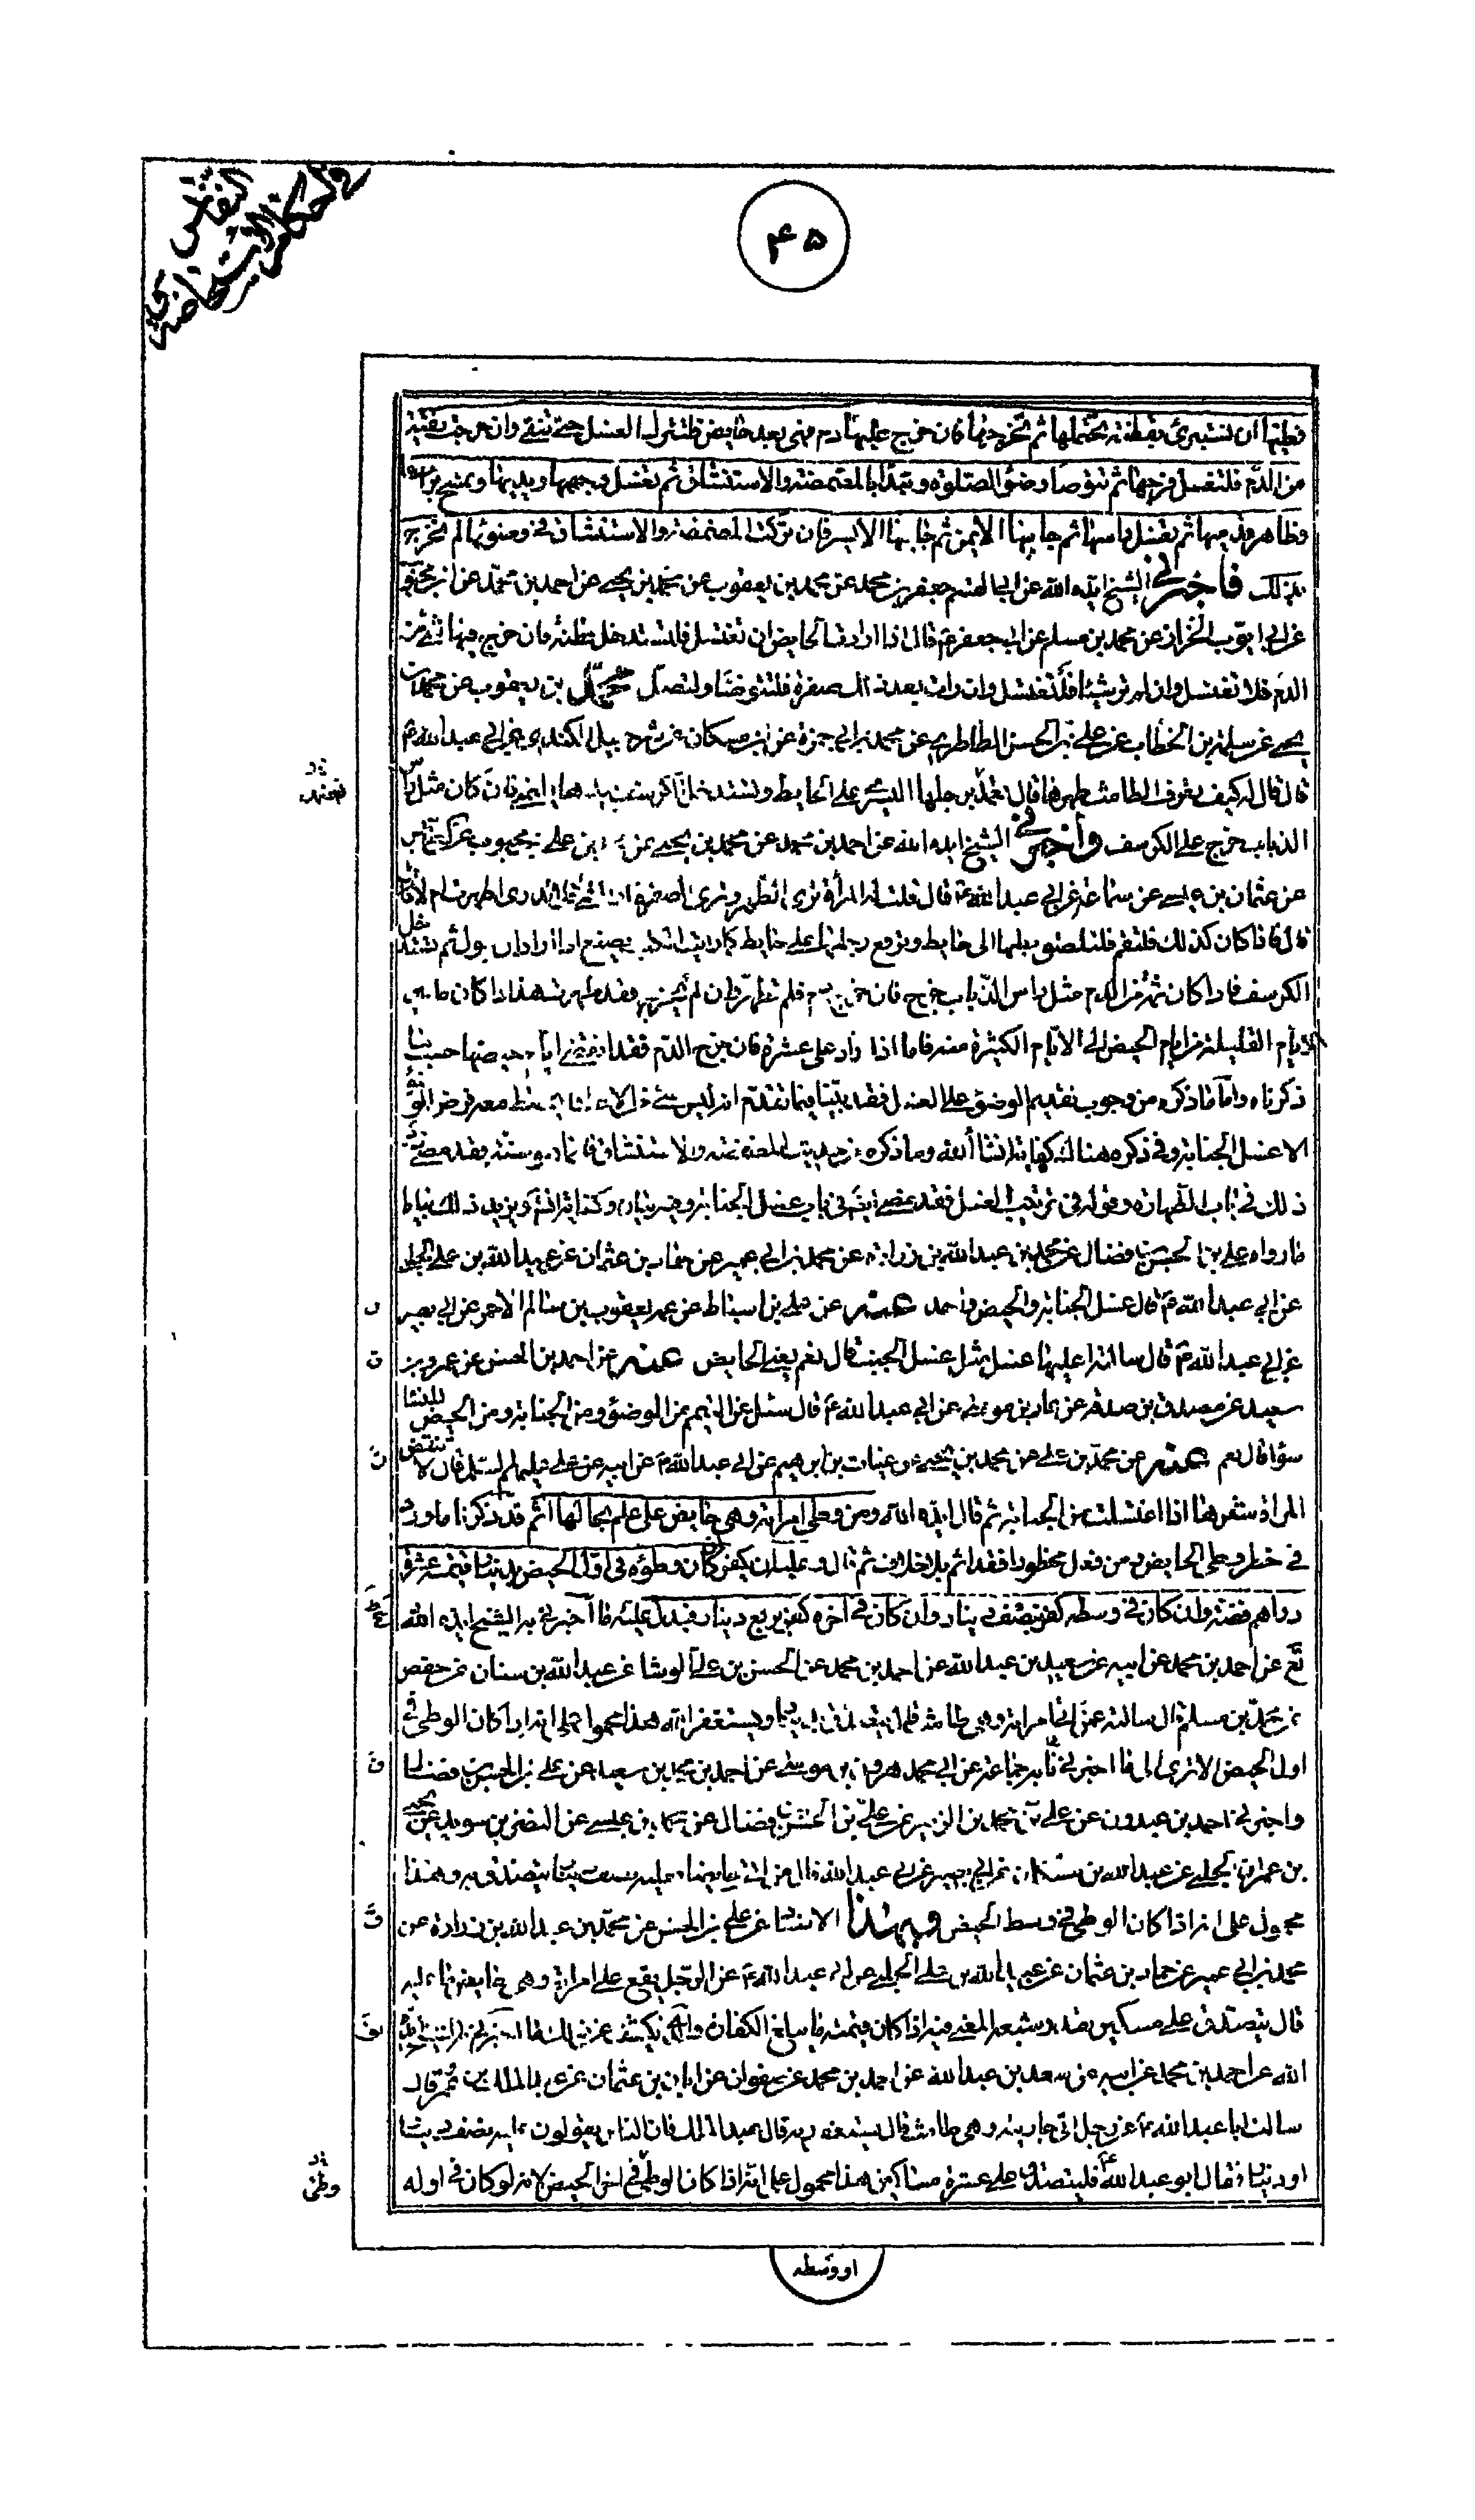 ۴۵
فعليها ان تستبرئ بقطنة تحتملها ثم تخرجها فان خرج عليها دم فهي بعد حايض فلتترك الغسل حتى تنقى وان خرجت نقية
من الدم فلتغسل فرجها ثم تتوضأ وضوء الصلوة وتبتدأ بالمضمضة والاستنشاق ثم تغسل وجهها ويديها وتمسح براسها
وظاهر قدميها ثم تغسل راسها ثم جانبها الايمن ثم جانبها الايسر فان تركت المضمضة والاستنشاق في وضوئها لم تحرج
بذلك فاخبرني الشيخ ايده الله عن ابي القسم جعفر بن محمد عن محمد بن يعقوب عن محمد بن يحيى عن احمد بن محمد عن ابن محبوب
عن ابي ايوب الخزاز عن محمد بن مسلم عن ابي جعفر ع قال اذا ارادت الحايض ان تغتسل فلتستدخل قطنة فان خرج فيها شئ من
الدم فلا تغتسل وان لم تر شيئا فلتغتسل وان رات بعد ذلك صفرة فلتتوضأ ولتصل محمد بن يعقوب عن محمد بن
يحيى عن سلمة بن الخطاب عن علي بن الحسن الطاطري عن محمد بن ابي حمزة عن ابن مسكان عن شرحبيل الكندي عن ابي عبد الله ع
قال قال له كيف تعرف الطامث طهرها قال تعمد برجلها اليسرى على الحايط وتستدخل الكرسف بيدها اليمنى فان كان مثل راس
الذباب خرج على الكرسف واخبرني الشيخ ايده الله عن احمد بن محمد عن محمد بن يحيى عن ابن علي بن محبوب عن
عن عثمان بن عيسى عن سماعة عن ابي عبد الله ع قال قلت له المرأة ترى الطهر وترى الصفرة او الشئ فلا تدري اطهرت ام لا
قال فاذا كان كذلك فلتقم فلتلصق بطنها الى حايط وترفع رجلها على حايط كما رايت الكلب يصنع اذا اراد ان يبول ثم تستدخل
الكرسف فاذا كان ثم من الدم مثل راس الذباب خرج فان خرج دم فلم تطهر وان لم يخرج فقد طهرت هذا اذا كان ما بين
الايام القليلة من ايام الحيض الى الايام الكثيرة منه فاما اذا زاد على عشرة فان خرج الدم فقد انقضى ايام حيضها حسب ما
ذكرناه واما ما ذكره من وجوب تقديم الوضوء على الغسل فقد بينا فيما تقدم انه ليس شئ من الاغسال يسقط معه فرض الوضوء
الا غسل الجنابة وفي ذكره هناك كفاية ان شاء الله وما ذكره من حديث المضمضة والاستنشاق فانهما سنة وقد مضى
ذلك في باب الطهارة وقوله في ترتيب الغسل فقد مضى ايضا في باب غسل الجنابة وفيه بيان وكفاية انشاء الله ويزيد ذلك بيانا
ما رواه علي بن الحسن بن فضال عن محمد بن عبد الله بن زرارة عن محمد بن ابي عمير عن حماد بن عثمان عن عبيد الله بن علي الحلبي
عن ابي عبد الله ع قال غسل الجنابة والحيض واحد عنه عن علي بن اسباط عن عمه يعقوب بن سالم الاحمر عن ابي بصير
عن ابي عبد الله ع قال سالته اعليها غسل مثل غسل الجنب قال نعم يعني الحايض عنه عن احمد بن الحسن عن عمرو بن
سعيد عن مصدق بن صدقة عن عمار بن موسى عن ابي عبد الله ع قال سئل عن التيمم من الوضوء ومن الجنابة ومن الحيض للنساء
سواء قال نعم عنه عن محمد بن علي عن محمد بن يحيى عن غياث بن ابراهيم عن ابي عبد الله ع عن ابيه عن علي عليهم السلم قال لا تنقض
المراة شعرها اذا اغتسلت من الجنابة ثم قال ايده الله ومن وطى امراته وهي حايض على علم بحالها اثم قد ذكرنا ما ورد
في حظر وطى الحايض ومن فعل محظورا فقد اثم بلا خلاف ثم قال وعليه ان يكفر ان كان وطؤه في اول الحيض بدينار قيمته عشرة
دراهم فضة وان كان في وسطه كفر بنصف دينار وان كان في آخره كفر بربع دينار فيدل عليه ما اخبرني به الشيخ ايده الله
تع عن احمد بن محمد عن ابيه عن سعد بن عبد الله عن احمد بن محمد عن الحسن بن علي الوشا عن عبد الله بن سنان عن حفص
عن محمد بن مسلم قال سالته عمن اتى امراته وهي طامث قال يتصدق بدينار ويستغفر الله هذا محمول على انه اذا كان الوطى في
اول الحيض الا ترى الى ما اخبرني به جماعة عن ابي محمد هرون بن موسى عن احمد بن محمد بن سعيد عن علي بن الحسن بن فضال
واخبرني احمد بن عبدون عن علي بن محمد بن الزبير عن علي بن الحسن بن فضال عن محمد بن عيسى عن النضر بن سويد عن يحيى
بن عمران الحلبي عن عبد الله بن مسكان عن ابي بصير عن ابي عبد الله قال من اتى حايضا فعليه نصف دينار يتصدق به وهذا
محمول على انه اذا كان الوطى في وسط الحيض وبهذا الاسناد عن علي بن الحسن عن محمد بن عبد الله بن زرارة عن
محمد بن ابي عمير عن حماد بن عثمان عن عبيد الله بن علي الحلبي عن ابي عبد الله ع عن الرجل يقع على امراته وهي حايض ما عليه
قال يتصدق على مسكين بقدر شبعه المعنى فيه اذا كان قيمته ما يبلغ الكفارة
الله عن احمد بن محمد عن ابيه عن سعد بن عبد الله عن احمد بن محمد عن صفوان عن ابان بن عثمان عن عبد الملك بن عمرو قال
سالت ابا عبد الله ع عن رجل اتى جاريته وهي طامث قال يستغفر ربه قال عبد الملك فان الناس يقولون عليه نصف دينار
او دينار فقال ابو عبد الله ع فليتصدق على عشرة مساكين هذا محمول على انه اذا كان الوطى في اخر الحيض لانه لو كان في اوله
او وسطه